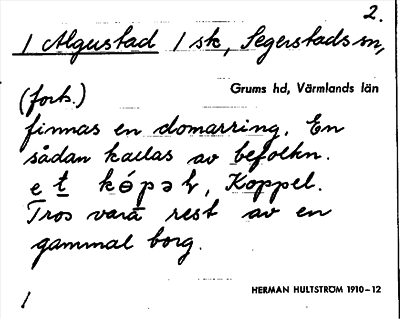 2.
1 Algustad 1 sk, Segerstads sn,
Grums hd, Värmlands län
(forts.)
finnas en domarring. En
sådan kallas av befolkn.
e t k ə p ə l, Koppel.
Tros vara rest av en
gammal borg.
HERMAN HULTSTRÖM 1910–12
1